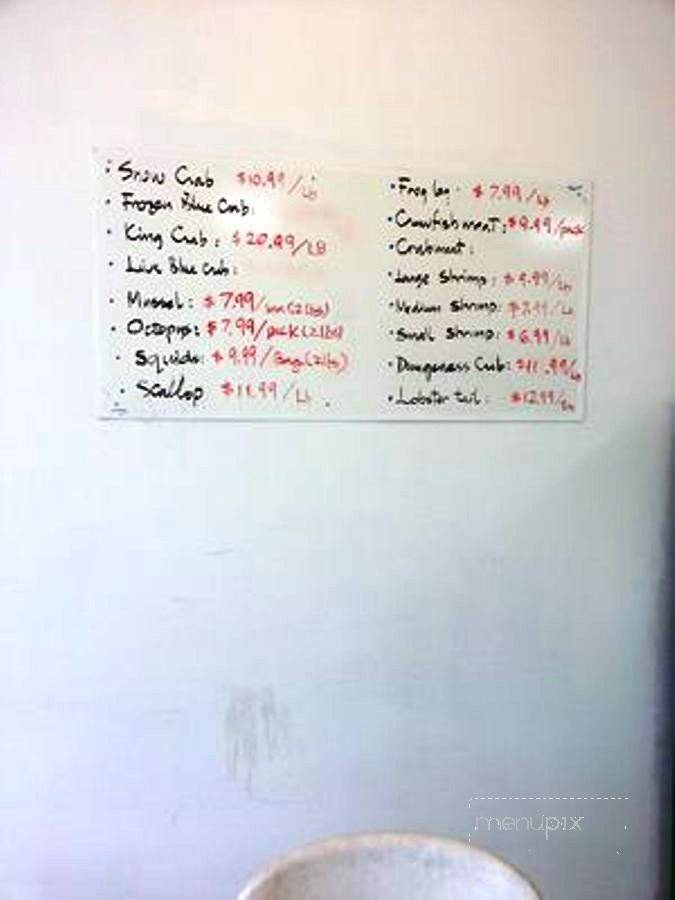 • Snow Crab $10.99/Lb
• Frozen Blue Crab:
• King Crab: $20.99/LB
• Live Blue Crab:
• Mussel: $7.99/ (2lbs)
• Octopus: $7.99/pack (2lbs)
• Squids: $9.99/Bag (2lbs)
• Scallop $11.99/Lb
• Frog leg $7.99/Lb
• Crawfish meat: $9.99/pack
• Crabmeat:
• Large Shrimp: $9.99/Lb
• Medium Shrimp: /Lb
• Small Shrimp: $6.99/Lb
• Dungeness Crab: $11.99/Lb
• Lobster tail: $12.99/
menupix